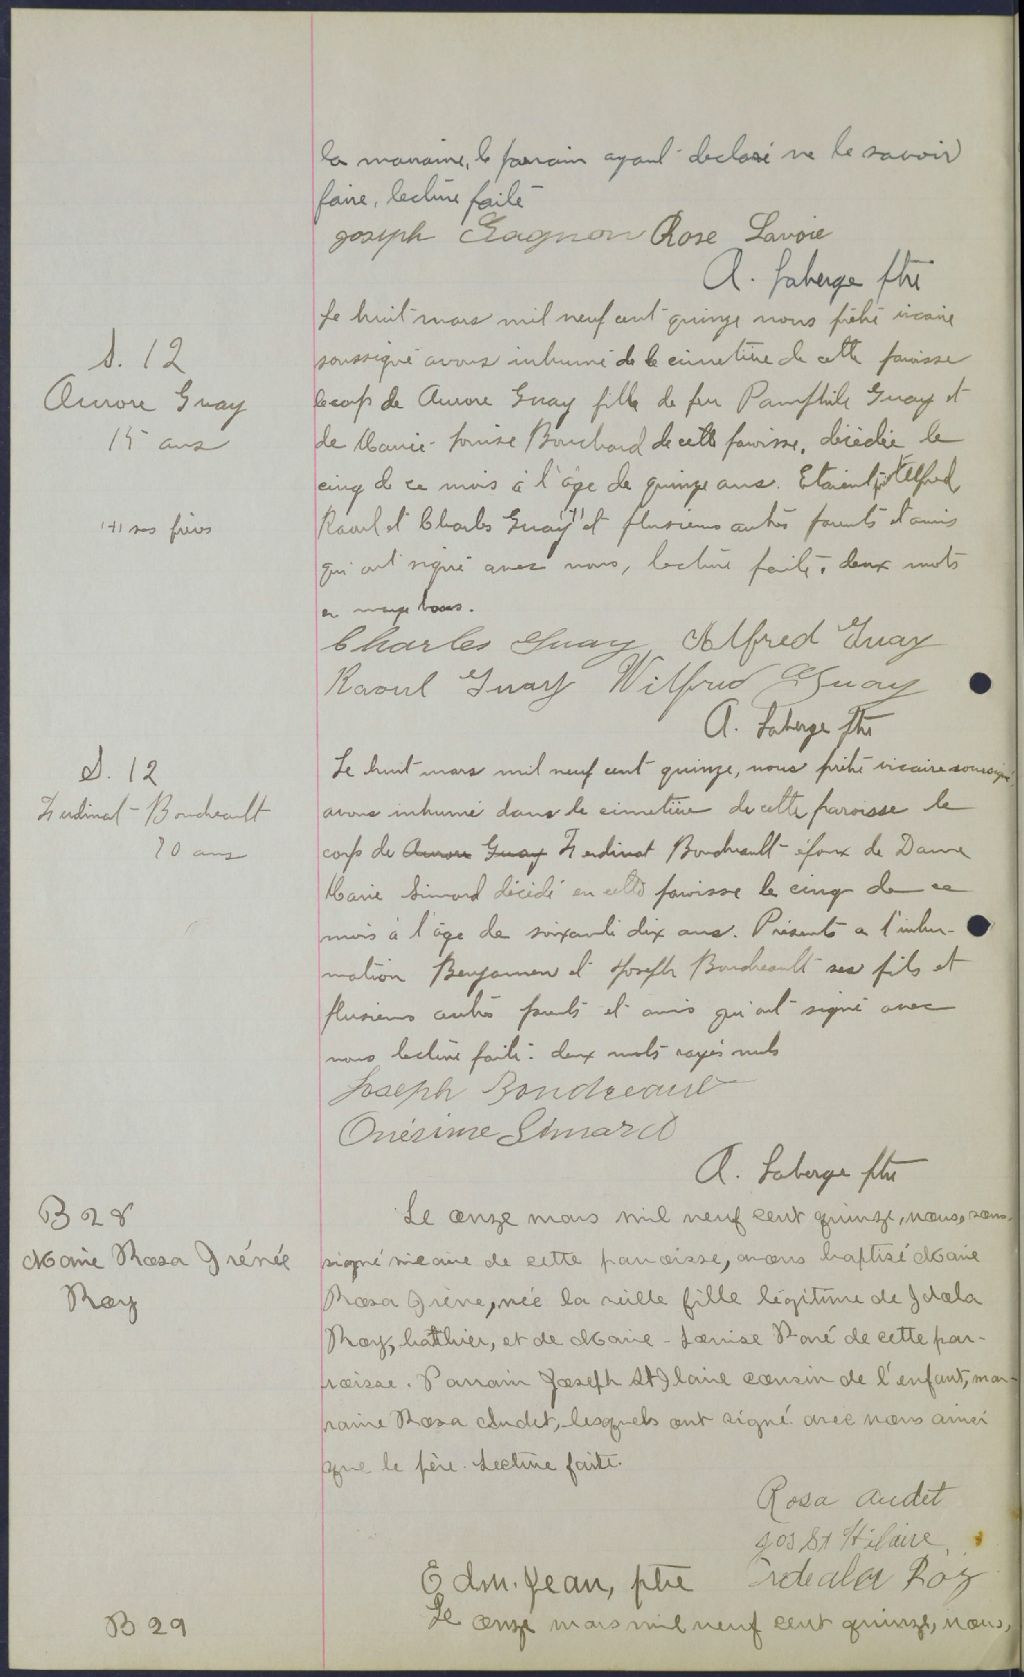 la marraine, le parrain ayant declaré ne le savoir
faire, lecture faite
Joseph Gagnon Rose Lavoie
A. Laberge ptre
Le huit mars mil neuf cent quinze nous prêtre vicaire
S. 12
Aurore Guay
15 ans
soussigné avons inhumé de le cimetière de cette paroisse
le corps de Aurore Guay fille de feu Pamphile Guay et
de Marie-Louise Bouchard de cette paroisse, décédée le
cinq de ce mois à l'âge de quinze ans. Etaient Alfred,
(+) ses frères
Raoul et Charles Guay (+) et plusieurs autres parents et amis
qui ont signé avec nous, lecture faite, deux mots
en marge bons.
Charles Guay Alfred Guay
Raoul Guay Wilfrid Guay
A. Laberge ptre
S. 12
Ferdinat-Boudreault
70 ans
Le huit mars mil neuf cent quinze, nous prêtre vicaire soussigné,
avons inhumé dans le cimetière de cette paroisse le
corps de Aurore Guay Ferdinat Boudreault époux de Dame
Marie Simard décédé en cette paroisse le cinq de ce
mois à l'âge de soixante dix ans. Présents a l'inhu-
mation Benjamen et Joseph Boudreault ses fils et
plusieurs autres parents et amis qui ont signé avec
nous lecture faite. deux mots rayés nuls
Joseph Boudreault
Onésime Simard
A. Laberge ptre
B 28
Marie Rosa Irénée
Roy
Le onze mars mil neuf cent quinze, nous, sous-
signé vicaire de cette paroisse, avons baptisé Marie
Rosa Irène, née la veille fille légitime de Idola
Roy, laitier, et de Marie-Louise Paré de cette par-
roisse. Parrain Joseph St Hlaire cousin de l'enfant, mar-
raine Rosa Audet, lesquels ont signé avec nous ainsi
que le père. Lecture faite.
Rosa Audet
Jos St Hilaire
Edm. Jean, ptre Roy
B 29
Le onze mars mil neuf cent quinze, nous,